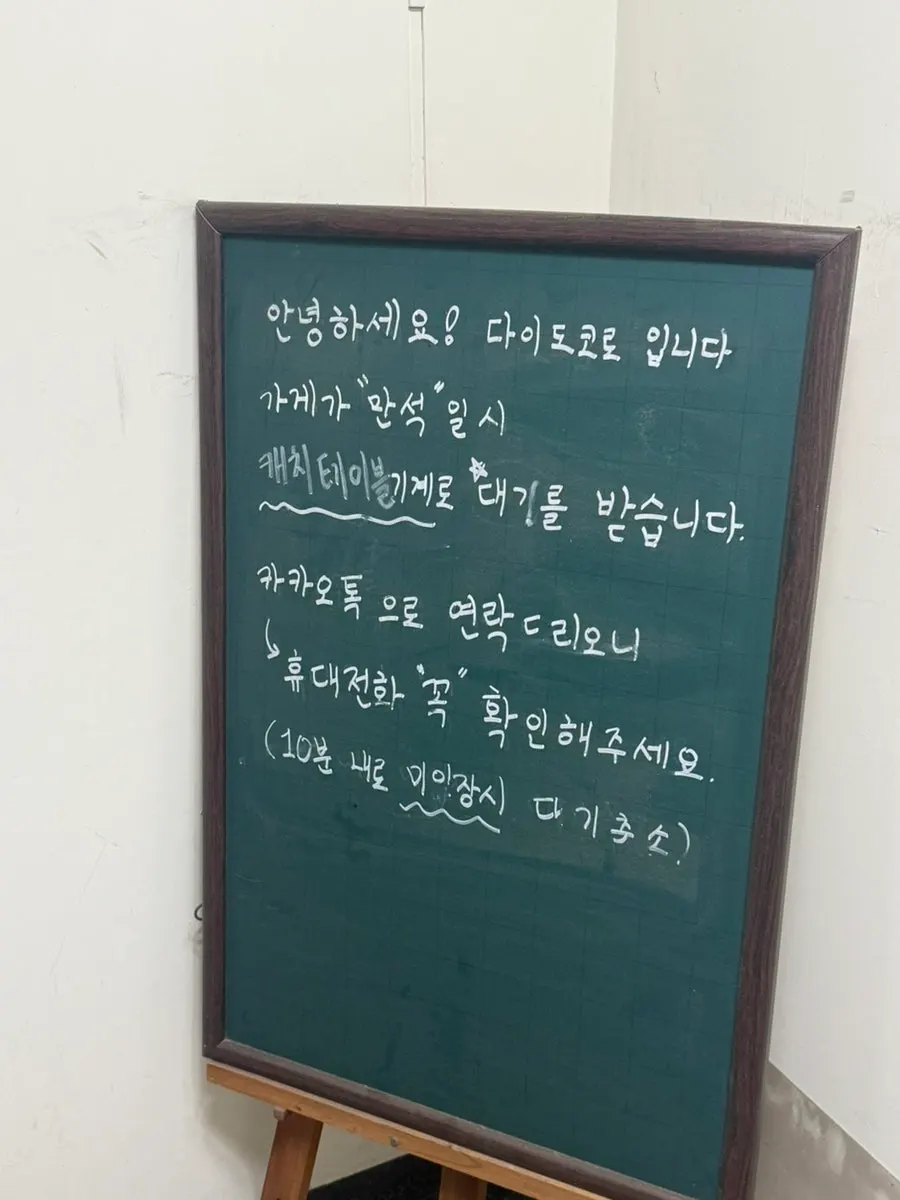 안녕하세요! 다이도코로 입니다
가게가 "만석" 일 시
캐치테이블기계로 ☆대기를 받습니다.
카카오톡 으로 연락드리오니
↳ 휴대전화 "꼭" 확인해주세요.
(10분 내로 미입장시 대기츄소)